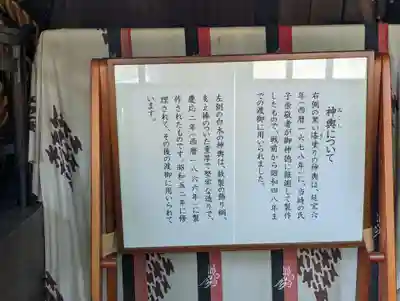 神輿について
みこし
右側の黒い漆塗りの神輿は、延宝六
年(西暦一六七八年)に、当時の氏
子崇敬者が御神徳に報謝して製作
したもので、戦前から昭和四八年ま
での渡御に用いられました。
左側の白木の神輿は、鉄製の飾り棡、
丸と棒のついた重厚で堅牢な造りで、
慶応二年(西暦一八六六年)に製
作されたものです。昭和五二年に修
理されて、その後の渡御に用いられて
います。